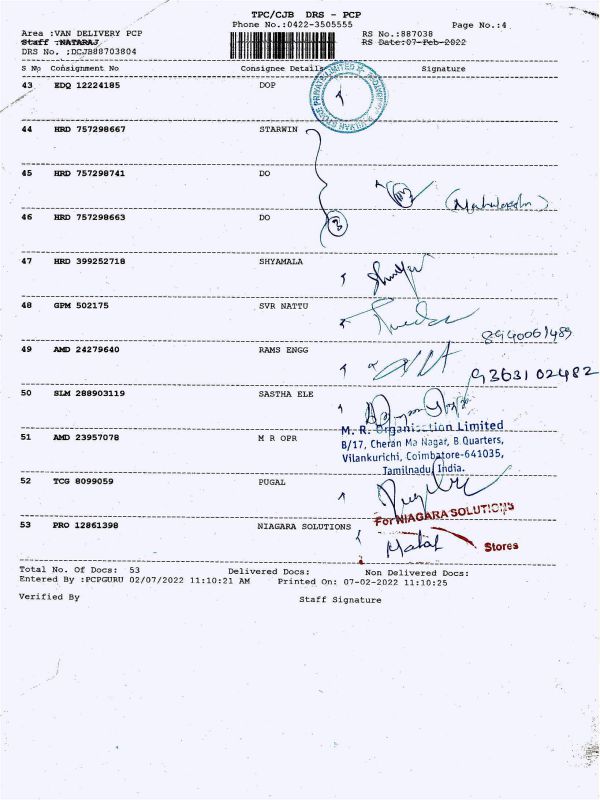 TPC/CJB DRS - PCP
Phone No.:0422-3505555 Page No.:4
Area :VAN DELIVERY PCP RS No.:887038
Staff :NATARAJ RS Date:07-Feb-2022
DRS No. :DCJB88703804
S No Consignment No Consignee Details Signature
43 EDQ 12224185 DOP
44 HRD 757298667 STARWIN
45 HRD 757298741 DO
46 HRD 757298663 DO
47 HRD 399252718 SHYAMALA
48 GPM 502175 SVR NATTU
8940061489
49 AMD 24279640 RAMS ENGG
9363102482
50 SLM 288903119 SASTHA ELE
M. R. Organisation Limited
51 AMD 23957078 M R OPR B/17, Cheran Ma Nagar, B.Quarters,
Vilankurichi, Coimbatore-641035,
Tamilnadu India.
52 TCG 8099059 PUGAL
For NIAGARA SOLUTIONS
53 PRO 12861398 NIAGARA SOLUTIONS
Stores
Total No. Of Docs: 53 Delivered Docs: Non Delivered Docs:
Entered By :PCPGURU 02/07/2022 11:10:21 AM Printed On: 07-02-2022 11:10:25
Verified By Staff Signature